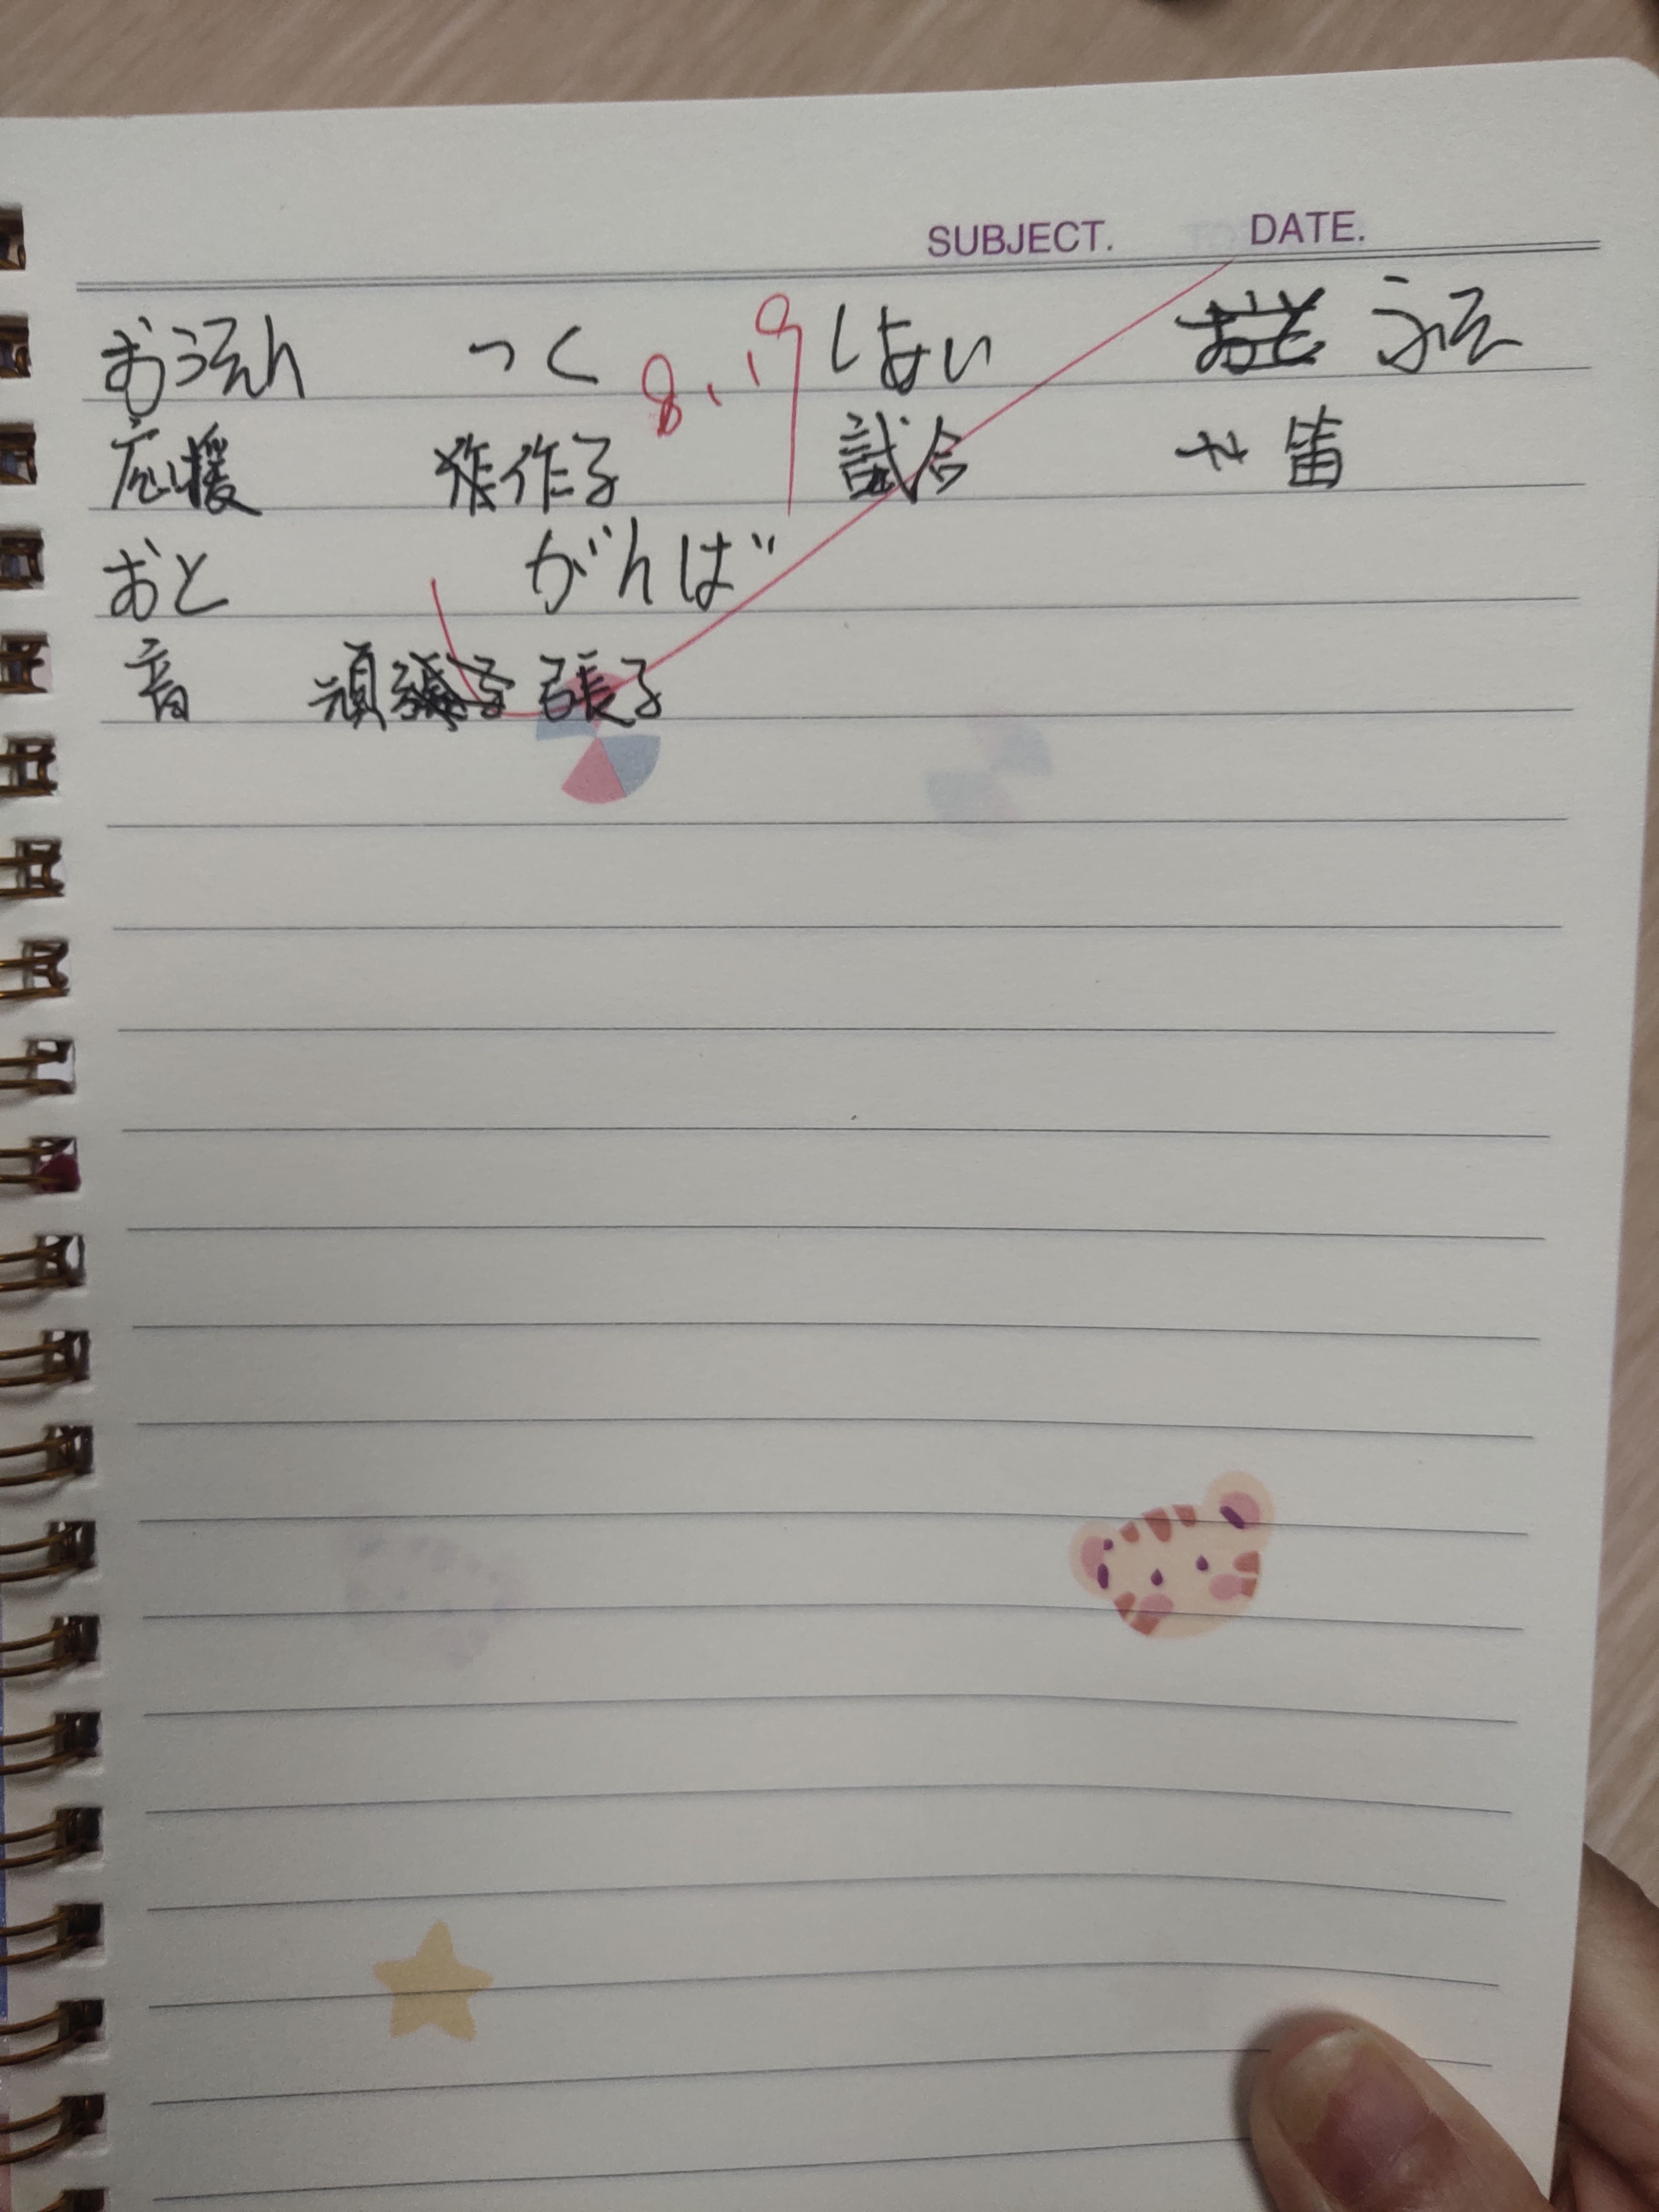 SUBJECT. DATE.
おうえん つく 8.19 しあい ふえ
応援 作る 試合 笛
おと がんば
音 頑張る